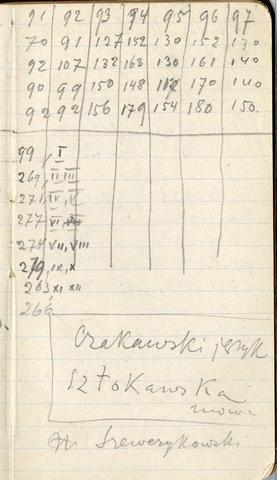 91 92 93 94 95 96 97
70 91 127 152 130 152 130
92 107 132 163 130 161 140
90 99 150 148 112 170 140
92 92 156 179 154 180 150.
99, I
269, II III
271, IV, V
277 VI, VII
274 VII, VIII
279, IX, X
263 XI XII
266
Czakawski język
SZTOKAWSKA
mowa
Szewerykowski